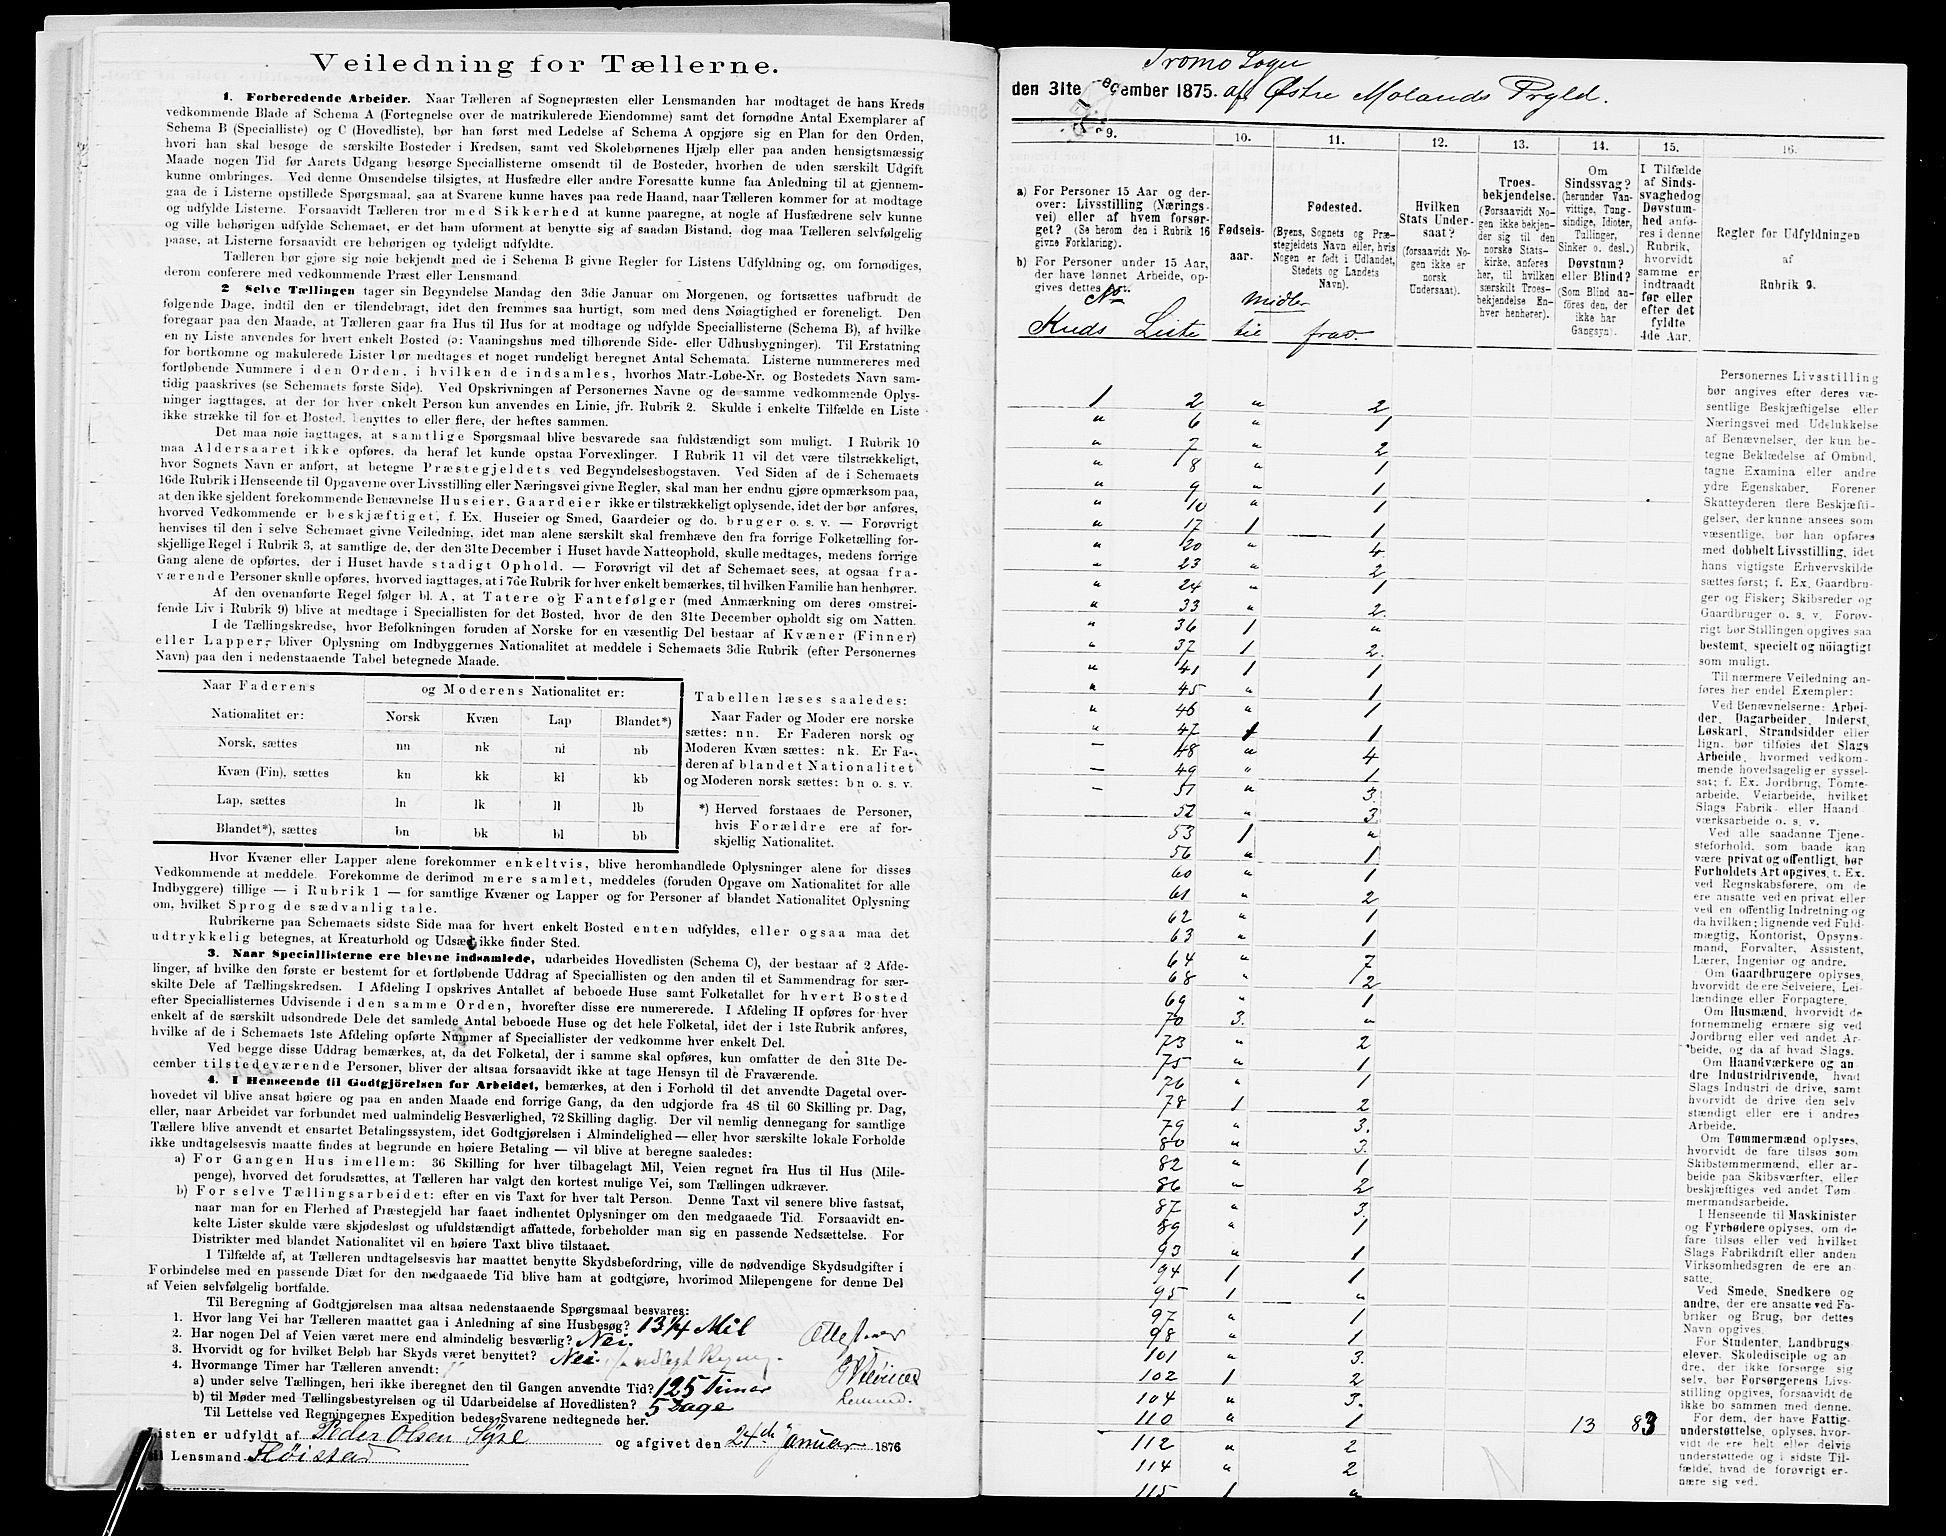 Veiledning for Tællerne.
1. Forberedende Arbeider. Naar Tælleren af Sognepræsten eller Lensmanden har modtaget de hans Kreds
vedkommende Blade af Schema A (Fortegnelse over de matrikulerede Eiendomme) samt det fornødne Antal Exemplarer af
Schema B (Specialliste) og C (Hovedliste), bør han først med Ledelse af Schema A opgjøre sig en Plan for den Orden,
hvori han skal besøge de særskilte Bosteder i Kredsen, samt ved Skolebørnenes Hjælp eller paa anden hensigtsmæssig
Maade nogen Tid før Aarets Udgang besørge Speciallisterne omsendt til de Bosteder, hvorhen de uden særskilt Udgift
kunne ombringes. Ved denne Omsendelse tilsigtes, at Husfædre eller andre Foresatte kunne faa Anledning til at gjennem-
gaa de i Listerne opstillede Spørgsmaal, saa at Svarene kunne haves paa rede Haand, naar Tælleren kommer for at modtage
og udfylde Listerne. Forsaavidt Tælleren tror med Sikkerhed at kunne paaregne, at nogle af Husfædrene selv kunne
og ville behørigen udfylde Schemaet, er det ham uforment at benytte sig af saadan Bistand, dog maa Tælleren selvfølgelig
paase, at Listerne forsaavidt ere behørigen og tydeligt udfyldte.
Tælleren bør gjøre sig nøie bekjendt med de i Schema B givne Regler for Listens Udfyldning og, om fornødiges,
derom conferere med vedkommende Præst eller Lensmand.
2 Selve Tællingen tager sin Begyndelse Mandag den 3die Januar om Morgenen, og fortsættes uafbrudt de
følgende Dage, indtil den er tilendebragt, idet den fremmes saa hurtigt, som med dens Nøiagtighed er foreneligt. Den
foregaar paa den Maade, at Tælleren gaar fra Hus til Hus for at modtage og udfylde Speciallisterne (Schema B), af hvilke
en ny Liste anvendes for hvert enkelt Bosted (ɔ: Vaaningshus med tilhørende Side- eller Udhusbygninger). Til Erstatning
for bortkomne og makulerede Lister bør medtages et noget rundeligt beregnet Antal Schemata. Listerne nummereres med
fortløbende Nummere i den Orden, i hvilken de indsamles, hvorhos Matr.-Løbe-Nr. og Bostedets Navn sam-
tidig paaskrives (se Schemaets første Side). Ved Opskrivningen af Personernes Navne og de samme vedkommende Oplys-
ninger iagttages, at der for hver enkelt Person kun anvendes en Linie, jfr. Rubrik 2. Skulde i enkelte Tilfælde en Liste
ikke strække til for et Bosted, benyttes to eller flere, der heftes sammen.
Det maa nøie iagttages, at samtlige Spørgsmaal blive besvarede saa fuldstændigt som muligt. I Rubrik 10
maa Aldersaaret ikke opføres, da heraf let kunde opstaa Forvexlinger. I Rubrik 11 vil det være tilstrækkeligt,
hvor Sognets Navn er anført, at betegne Præstegjeldets ved Begyndelsesbogstaven. Ved Siden af de i Schemaets
16de Rubrik i Henseende til Opgaverne over Livsstilling eller Næringsvei givne Regler, skal man her endnu gjøre opmærksom paa,
at den ikke sjeldent forekommende Benævnelse Huseier, Gaardeier ikke er tilstrækkeligt oplysende, idet der bør anføres,
hvorved Vedkommende er beskjæftiget, f. Ex. Huseier og Smed, Gaardeier og do. bruger o. s. v. — Forøvrigt
henvises til den i selve Schemaet givne Veiledning, idet man alene særskilt skal fremhæve den fra forrige Folketælling for-
skjellige Regel i Rubrik 3, at samtlige de, der den 31te December i Huset havde Natteophold, skulle medtages, medens forrige
Gang alene de opførtes, der i Huset havde stadigt Ophold. — Forøvrigt vil det af Schemaet sees, at ogsaa fra-
værende Personer skulle opføres, hvorved iagttages, at i 7de Rubrik for hver enkelt bemærkes, til hvilken Familie han henhører.
Af den ovenanførte Regel følger bl. A. at Tatere og Fantefølger (med Anmærkning om deres omstrei-
fende Liv i Rubrik 9) blive at medtage i Speciallisten for det Bosted, hvor de den 31te December opholdt sig om Natten.
I de Tællingskredse, hvor Befolkningen foruden af Norske for en væsentlig Del bestaar af Kvæner (Finner)
eller Lapper, bliver Oplysning om Indbyggernes Nationalitet at meddele i Schemaets 3die Rubrik (efter Personernes
Navn) paa den i nedenstaaende Tabel betegnede Maade.
Naar Faderens og Moderens Nationalitet er:
Nationalitet er: Norsk Kvæn Lap Blandet*)
Norsk, sættes nn nk nl nb
Kvæn (Fin), sættes kn kk kl kb
Lap, sættes ln lk ll lb
Blandet*), sættes bn bk bl bb
Tabellen læses saaledes:
Naar Fader og Moder ere norske
sættes: nn. Er Faderen norsk og
Moderen Kvæn sættes: nk. Er Fa-
deren af blandet Nationalitet
og Moderen norsk sættes: bn o. s. v.
*) Herved forstaaes de Personer,
hvis Forældre ere af for-
skjellig Nationalitet.
Hvor Kvæner eller Lapper alene forekommer enkeltvis, blive heromhandlede Oplysninger alene for disses
Vedkommende at meddele. Forekomme de derimod mere samlet, meddeles (foruden Opgave om Nationalitet for alle
Indbyggere) tillige — i Rubrik 1 — for samtlige Kvæner og Lapper og for Personer af blandet Nationalitet Oplysning
om, hvilket Sprog de sædvanlig tale.
Rubrikerne paa Schemaets sidste Side maa for hvert enkelt Bosted enten udfyldes, eller ogsaa maa det
udtrykkelig betegnes, at Kreaturhold og Udsæd ikke finder Sted.
3. Naar Speciallisterne ere blevne indsamlede, udarbeides Hovedlisten (Schema C), der bestaar af 2 Afde-
linger, af hvilke den første er bestemt for et fortløbende Uddrag af Speciallisten og den anden til et Sammendrag for sær-
skilte Dele af Tællingskredsen. I Afdeling I opskrives Antallet af beboede Huse samt Folketallet for hvert Bosted
efter Speciallisternes Udvisende i den samme Orden, hvorefter disse ere numererede. I Afdeling II opføres for hver
enkelt af de særskilt udsondrede Dele det samlede Antal beboede Huse og det hele Folketal, idet der i 1ste Rubrik anføres,
hvilke af de i Schemaets 1ste Afdeling opførte Nummer af Speciallister der vedkomme hver enkelt Del.
Ved begge disse Uddrag bemærkes, at, da det Folketal, der i samme skal opføres, kun omfatter de den 31te De-
cember tilstedeværende Personer, bliver der altsaa forsaavidt ikke at tage Hensyn til de Fraværende.
4. I Henseende til Godtgjörelsen for Arbeidet, bemærkes, at den i Forhold til det anvendte Dagetal over-
hovedet vil blive ansat høiere og paa en anden Maade end forrige Gang, da den udgjorde fra 48 til 60 Skilling pr. Dag,
eller, naar Arbeidet var forbundet med ualmindelig Besværlighed, 72 Skilling daglig. Der vil nemlig dennegang for samtlige
Tællere blive anvendt et ensartet Betalingssystem, idet Godtgjörelsen i Almindelighed — eller hvor særskilte lokale Forholde
ikke undtagelsesvis maatte findes at begrunde en høiere Betaling — vil blive at beregne saaledes:
a) For Gangen Hus imellem: 36 Skilling for hver tilbagelagt Mil, Veien regnet fra Hus til Hus (Mile-
penge), hvorved det forudsættes, at Tælleren har valgt den kortest mulige Vei, som Tællingen udkræver.
b) For selve Tællingsarbeidet: efter en vis Taxt for hver talt Person. Denne Taxt vil senere blive fastsat,
naar man for en Flerhed af Præstegjeld har faaet indhentet Oplysninger om den medgaaede Tid. Forsaavidt en-
kelte Lister skulde være skjødesløst og ufuldstændigt affattede, forbeholder man sig en passende Nedsættelse. For
Distrikter med blandet Nationalitet vil en høiere Taxt blive tilstaaet.
I Tilfælde af, at Tælleren undtagelsesvis har maattet benytte Skydsbefordring, ville de nødvendige Skydsudgifter i
Forbindelse med en passende Diæt for den medgaaede Tid blive ham at godtgjøre, hvorimod Milepengene for denne Del
af Veien selvfølgelig bortfalde.
Til Beregning af Godtgjørelsen maa altsaa nedenstaaende Spørgsmaal besvares:
1. Hvor lang Vei har Tælleren maattet gaa i Anledning af sine Husbesøg? 13¼ Mil
2. Har nogen Del af Veien været mere end almindelig besværlig? Nei.
3. Hvorvidt og for hvilket Beløb har Skyds været benyttet? Nei.
4. Hvormange Timer har Tælleren anvendt:
a) under selve Tællingen, heri ikke iberegnet den til Gangen anvendte Tid? 125 Timer
b) til Møder med Tællingsbestyrelsen og til Udarbeidelse af Hovedlisten? 5 Dage
Til Lettelse ved Regningernes Expedition bedes Svarene nedtegnede her.
Listen er udfyldt af Peder Olsen og afgivet den 24de januar 1876
til Lensmand Fløistad
Tromø Sogn
den 31te December 1875. af Østre Molands Prgld.
9. 10. 11. 12. 13. 14. 15. 16.
a) For Personer 15 Aar og der-
over: Livsstilling (Nærings-
vei) eller af hvem forsør-
get? (Se herom den i Rubrik 16
givne Forklaring).
b) For Personer under 15 Aar,
der have lønnet Arbeide, op-
gives dettes Art.
Fødsels-
aar.
Fødested.
(Byens, Sognets og Præ-
stegjeldets Navn eller, hvis
Nogen er født i Udlandet,
Stedets og Landets
Navn).
Hvilken
Stats Under-
saat?
(forsaavidt No-
gen ikke er
norsk
Undersaat).
Troes-
bekjendelse.
(Forsaavidt No-
gen ikke bekjen-
der sig til den
norske Stats-
kirke, anføres
her, til hvilken
særskilt Troes-
bekjendelse En-
hver henhører).
Om
Sindssvag?
(herunder Van-
vittige, Tung-
sindige, Idioter,
Tullinger,
Sinker o. desl.)
Døvstum?
eller Blind?
(Som Blind an-
föres den, der
ikke har
Gangsyn).
I Tilfælde
af Sinds-
svaghed og
Døvstum-
hed anfø-
res i denne
Rubrik,
hvorvidt
samme er
indtraadt
før eller
efter det
fyldte
4de Aar.
Regler for Udfyldningen
af
Rubrik 9.
No midler
Kreds Liste til frav.
1 2 „ 2
„ 6 „ 1
„ 7 „ 2
„ 8 „ 1
„ 9 „ 1
„ 10 „ 1
„ 17 1 1
„ 20 „ 4
„ 23 „ 2
„ 24 „ 1
„ 33 „ 2
„ 36 1 „
„ 37 1 2
„ 41 1 1
„ 45 „ 1
„ 46 „ 1
„ 47 1 1
— 48 „ 4
— 49 „ 1
— 51 „ 3
52 „ 3
53 1 „
56 „ 1
60 „ 1
61 „ 2
62 „ 1
63 „ 1
64 „ 7
68 „ 2
69 „ 1
70 3 „
73 „ 2
75 „ 1
76 „ 1
78 1 2
79 „ 3
80 „ 3
82 „ 1
86 „ 2
87 „ 3
89 „ 1
93 „ 1
94 1 1
95 1 „
97 „ 1
98 „ 1
101 „ 3
102 1 2
104 „ 3
110 „ 1 13 83
112 „ 2
114 „ 2
115 1 „
Personernes Livsstilling
bør angives efter deres væ-
sentlige Beskjæftigelse eller
Næringsvei med Udelukkelse
af Benævnelser, der kun be-
tegne Beklædelse af Ombud,
tagne Examina eller andre
ydre Egenskaber. Forener
Skatteyderen flere Beskjæfti-
gelser, der kunne ansees som
væsentlige, bør han opføres
med dobbelt Livsstilling, idet
hans vigtigste Erhvervskilde
sættes først; f. Ex. Gaardbru-
ger og Fisker; Skibsreder og
Gaardbruger o. s. v. Forøv-
rigt bør Stillingen opgives saa
bestemt, specielt og nöiagtigt
som muligt.
Til nærmere Veiledning an-
føres her endel Exempler:
Ved Benævnelserne: Arbei-
der, Dagarbeider, Inderst,
Løskarl, Strandsidder eller
lign. bør tilføies det Slags
Arbeide, hvormed vedkom-
mende hovedsagelig er syssel-
sat; f. Ex. Jordbrug, Tomte-
arbeide, Veiarbeide, hvilket
Slags Fabrik- eller Haand-
værksarbeide o. s. v.
Ved alle saadanne Tjene-
steforhold, som baade kan
være privat og offentligt, bør
Forholdets Art opgives, t. Ex.
ved Regnskabsførere, om de
ere ansatte ved en privat eller
ved en offentlig Indretning og
da hvilken; lignende ved Fuld-
mægtig, Kontorist, Opsyns-
mand, Forvalter, Assistent,
Lærer, Ingeniør og andre.
Om Gaardbrugere oplyses,
hvorvidt de ere Selveiere, Lei-
lændinge eller Forpagtere.
Om Husmænd, hvorvidt de
fornemmelig ernære sig ved
Jordbrug eller ved andet Ar-
beide, og da af hvad Slags.
Om Haandværkere og an-
dre Industridrivende, hvad
Slags Industri de drive, samt
hvorvidt de drive den selv-
stændigt eller ere i andres
Arbeide.
Om Tømmermænd oplyses,
hvorvidt de fare tilsøs som
Skibstømmermænd, eller ar-
beide paa Skibsværfter, eller
beskjæftiges ved andet Tøm-
mermandsarbeide.
I Henseende til Maskinister
og Fyrbødere oplyses, om de
fare tilsøs eller ved hvilket
Slags Fabrikdrift eller anden
Virksomhedsgren de ere an-
satte.
Ved Smede, Snedkere og
andre, der ere ansatte ved Fa-
briker og Brug, bør dettes
Navn opgives.
For Studenter, Landbrugs-
elever, Skoledisciple og an-
dre, der ikke forsørge sig
selv, bør Forsørgerens Livs-
stilling opgives, forsaavidt de
ikke bo sammen med denne.
For dem, der have Fattig-
understøttelse, oplyses, hvor-
vidt de ere helt eller delvis
understøttede og i sidste Til-
fælde, hvad de forøvrigt er-
nære sig ved.